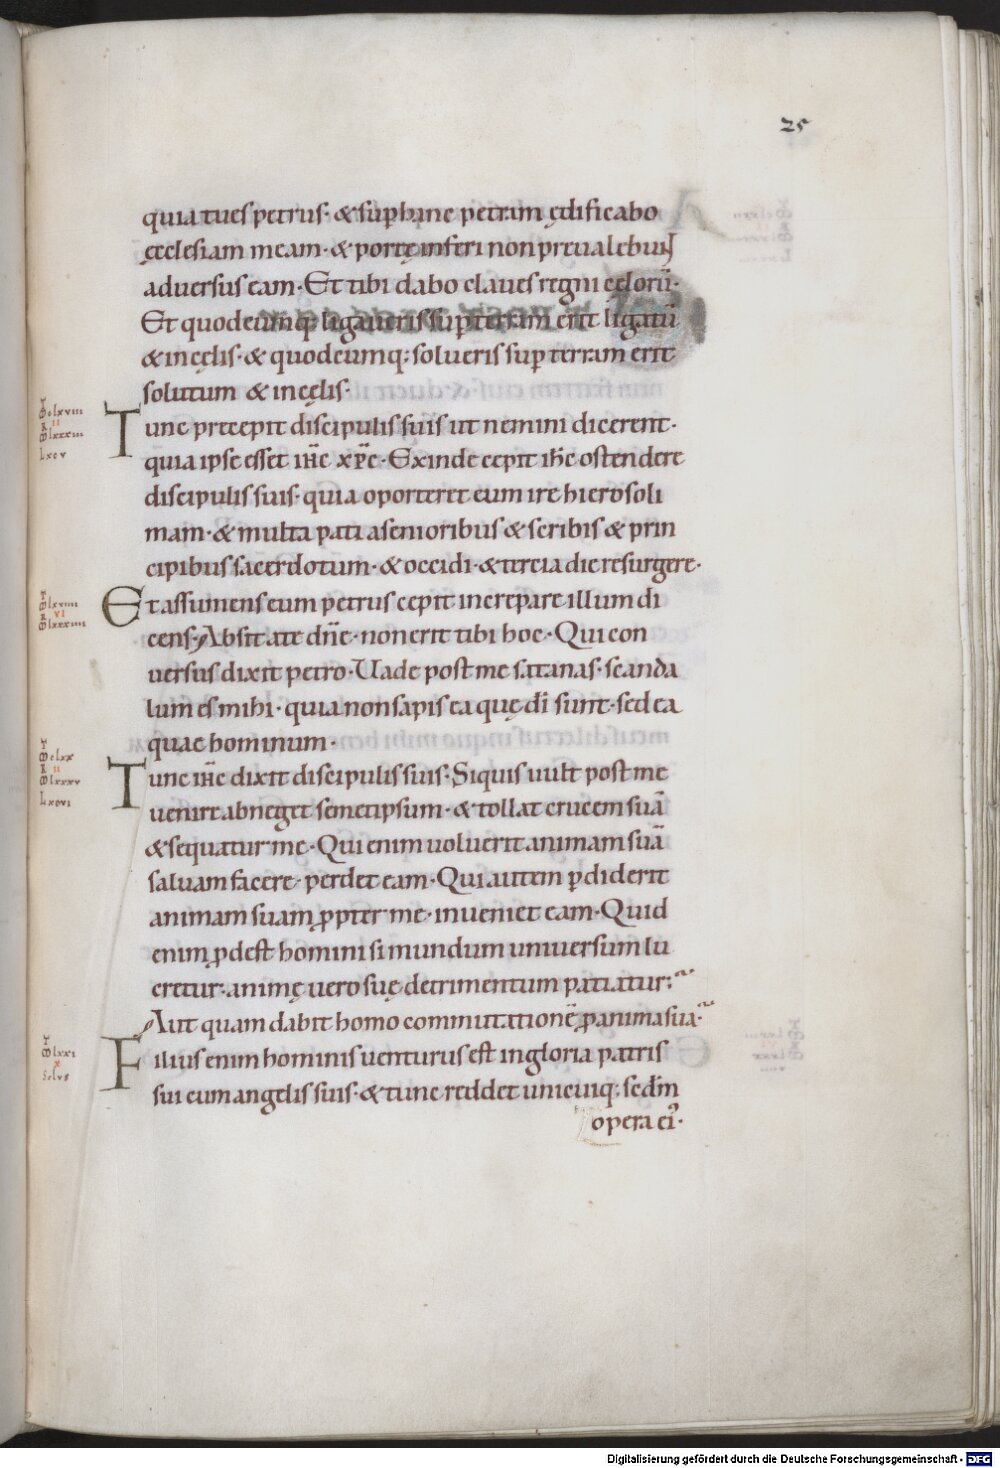 25
quia tu es petrus· & sup hanc petram ędificabo
ęcclesiam meam· & portę inferi non preualebunt
aduersus eam· Et tibi dabo claues regni cęlorū·
Et quodcumq; ligaueris sup terram erit ligatū
& in cęlis· & quodcumq; solueris sup terram erit
solutum & in cęlis·
Tunc precepit discipulis suis ut nemini dicerent·
quia ipse esset ih̄c xp̄c· Exinde cepit ih̄c ostendere
discipulis suis· quia oporteret eum ire hierosoli
mam· & multa pati a senioribus & scribis & prin
cipibus sacerdotum· & occidi· & tercia die resurgere·
Et assumens eum petrus cepit increpare illum di
cens· Absit a te dn̄e· non erit tibi hoc· Qui con
uersus dixit petro· Uade post me satanas· scanda
lum es mihi· quia non sapis ea quę dī sunt· sed ea
quae hominum·
Tunc ih̄c dixit discipulis suis· Si quis uult post me
uenire abneget semetipsum· & tollat crucem suā
& sequatur me· Qui enim uoluerit animam suā
saluam facere· perdet eam· Qui autem p̱diderit
animam suam ꝓpter me· inueniet eam· Quid
enim ꝓdest homini si mundum uniuersum lu
cretur· animę uero suę detrimentum patiatur·
Aut quam dabit homo commutationē ꝓ anima sua·
Filius enim hominis uenturus est in gloria patris
sui cum angelis suis· & tunc reddet unicuiq; sedm̄
opera ei᾽·
Digitalisierung gefördert durch die Deutsche Forschungsgemeinschaft - DFG